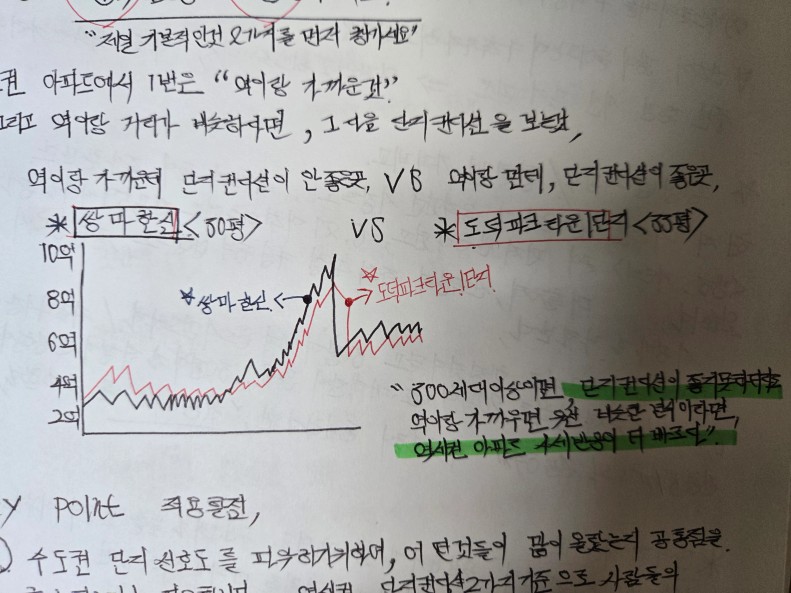 "제일 기본적인것 2가지를 먼저 챙기세요"
권 아파트에서 1번은 "역이랑 가까운것".
그리고 역이랑 거리가 비슷하다면, 그 다음 단지컨디션을 보는것,
역이랑 가까운데 단지컨디션이 안좋은곳, VS 역이랑 먼데, 단지컨디션이 좋은곳,
* 쌍마한신 <30평> VS * 도덕파크타운1단지 <33평>
10억
8억
6억
4억
2억
쌍마한신.
도덕파크타운1단지.
"300세대이상이면, 단지컨디션이 좋지못하더라도
역이랑 가까우면 비슷한 연식이라면,
역세권 아파트 시세반응이 더 빠르다".
Y POINT 적용할점,
수도권 단지 선호도를 파악하기위하여, 어떤것들이 많이 올랐는지 공통점을.
역세권, 단지컨디션 2가지 기준으로 사람들의